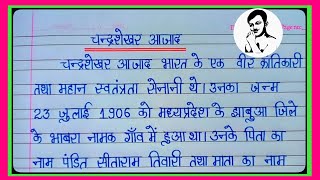 चन्द्रशेखर आजाद
चन्द्रशेखर आजाद भारत के एक वीर क्रांतिकारी
तथा महान स्वतंत्रता सेनानी थे। उनका जन्म
23 जुलाई 1906 को मध्यप्रदेश के झाबुआ जिले
के भाबरा नामक गाँव में हुआ था। उनके पिता का
नाम पंडित सीताराम तिवारी तथा माता का नाम